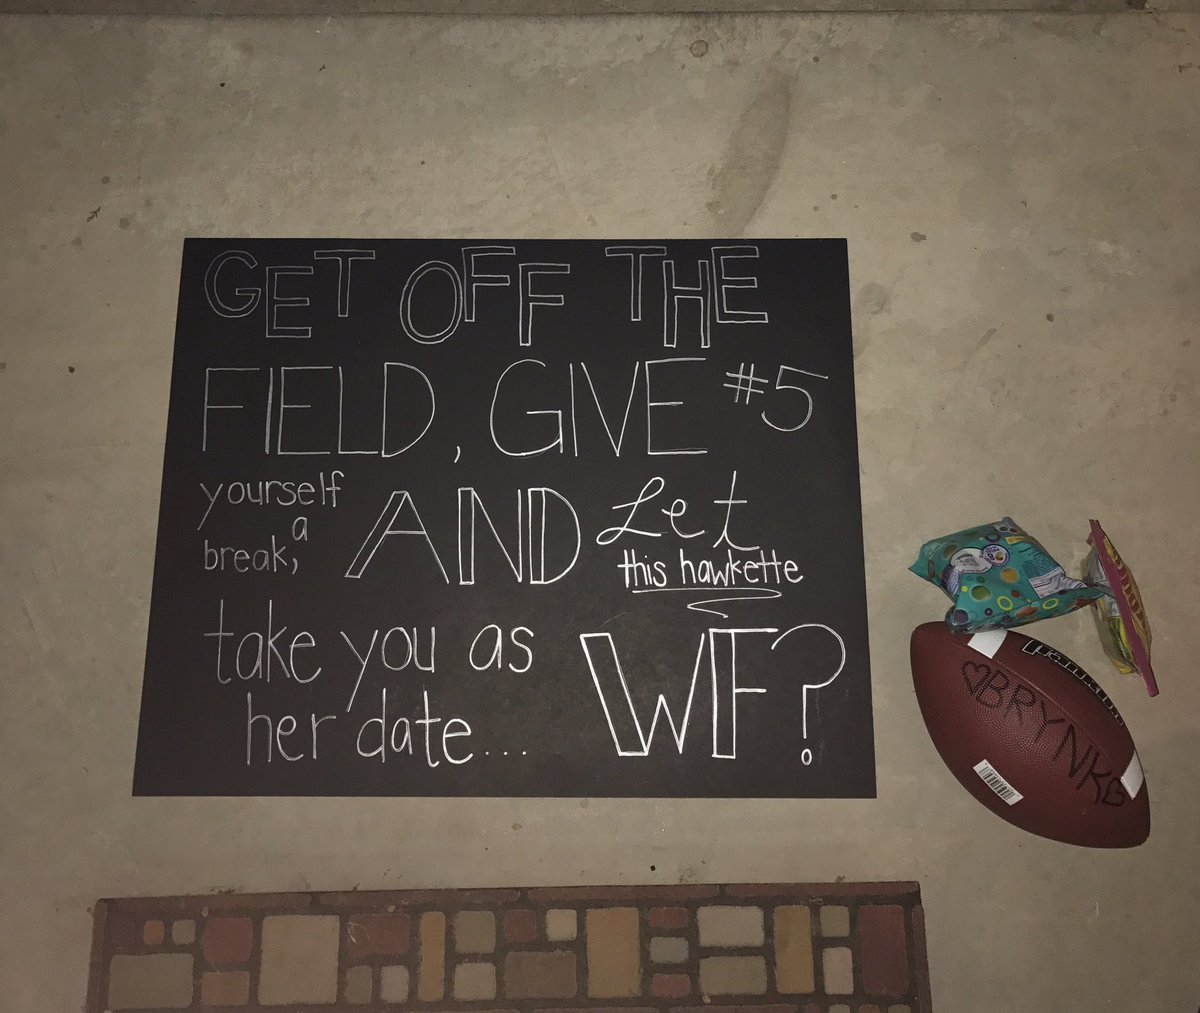 GET OFF THE
FIELD, GIVE #5
yourself
a
break,
AND Let
this hawkette
take you as
her date...
WF?
♡BRYNKB